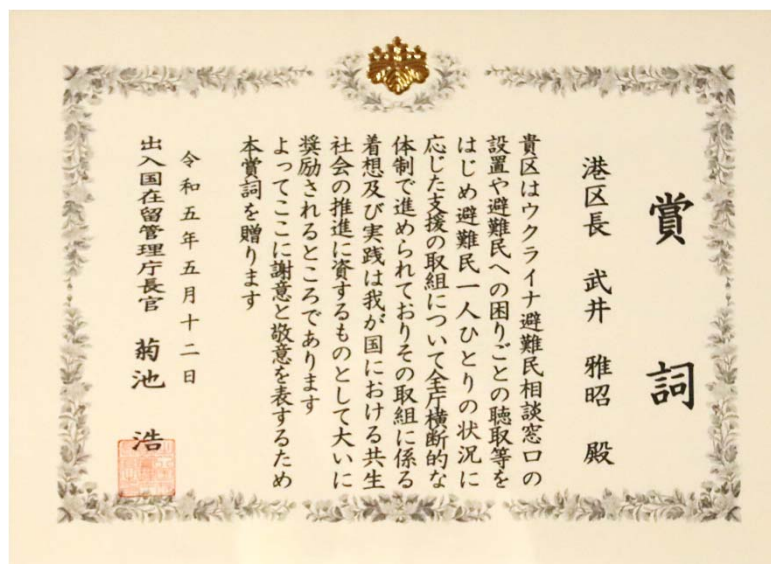 賞詞
港区長 武井 雅昭 殿
貴区はウクライナ避難民相談窓口の
設置や避難民への困りごとの聴取等を
はじめ避難民一人ひとりの状況に
応じた支援の取組について全庁横断的な
体制で進められておりその取組に係る
着想及び実践は我が国における共生
社会の推進に資するものとして大いに
奨励されるところであります
よってここに謝意と敬意を表するため
本賞詞を贈ります
令和五年五月十二日
出入国在留管理庁長官 菊池 浩